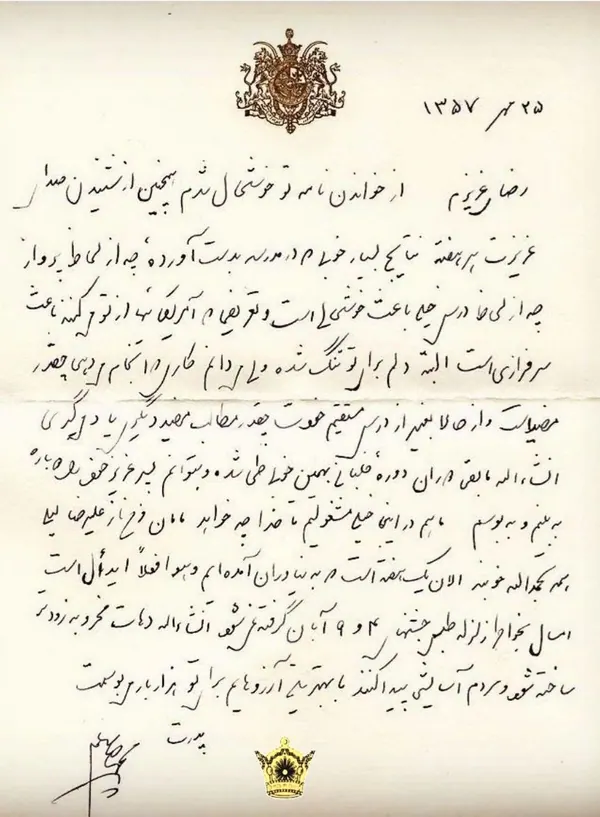 ۲۵ مهر ۱۳۵۷
رضای عزیزم از خواندن نامه تو خوشحال شدم همچنین از شنیدن صدای
عزیزت هر هفته نتایج بسیار خوبی در مدرسه بدست آورده‌ای چه از لحاظ پرواز
چه از لحاظ درس خیلی باعث خوشحالی است و تعریفی که آمریکائیها از تو می‌کنند باعث
سرفرازی است البته دلم برای تو تنگ شده ولی می‌دانم کاری که انجام می‌دهی چقدر
مفید است و از حالا بغیر از درس مستقیم خودت چقدر مطالب مفید دیگری یاد می‌گیری
انشاءالله مابقی دوران دوره خلبانی بهمین خوبی طی شده و بتوانم پسر عزیز خود را دوباره
به بینم و به بوسم ما هم در اینجا خیلی مشغولیم تا خدا چه خواهد مامان فرحناز علیرضا لیلی
همه بحمدالله خوبند الان یک هفته است که به نیاوران آمده‌ایم و هوا فعلاً ایدآل است
امسال بخاطر زلزله طبس جشنهای ۴ و ۹ آبان گرفته نمی‌شود انشاءالله دهات مخروبه زودتر
ساخته شود و مردم آسایشی پیدا کنند با بهترین آرزوهایم برای تو هزار بار می‌بوسمت
پدرت